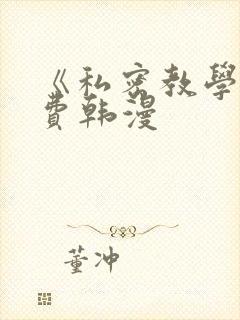 《私密教學
費韩漫
董冲